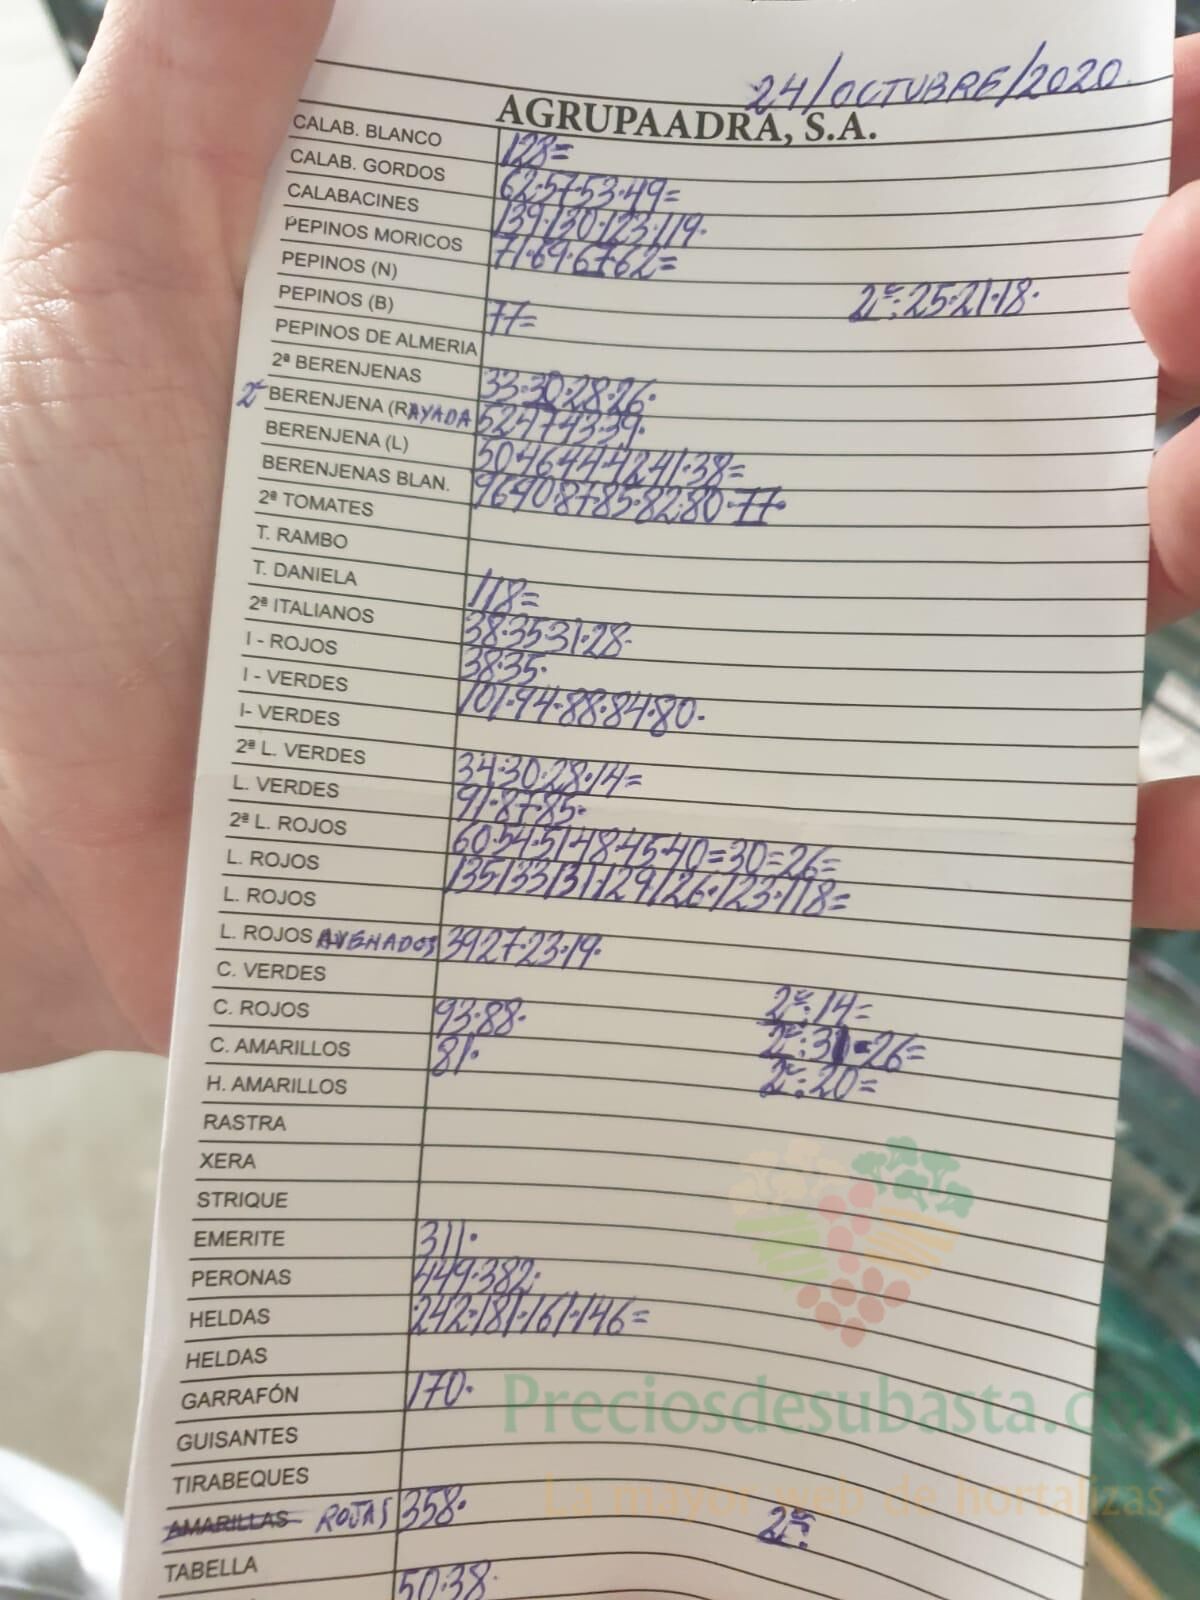 24/OCTUBRE/2020.
AGRUPAADRA, S.A.
CALAB. BLANCO 128=
CALAB. GORDOS 62·57·53·49=
CALABACINES 139·130·123·119·
PEPINOS MORICOS 71·69·67·62=
PEPINOS (N) 2ªˢ:25·21·18·
PEPINOS (B) 77=
PEPINOS DE ALMERIA
2ª BERENJENAS 33·30·28·26·
2ª BERENJENA (RAYADA 52·47·43·39·
BERENJENA (L) 50·46·44·42·41·38=
BERENJENAS BLAN. 96·90·87·85·82·80·77·
2ª TOMATES
T. RAMBO
T. DANIELA 118=
2ª ITALIANOS 38·35·31·28·
I - ROJOS 38·35·
I - VERDES 101·94·88·84·80·
I- VERDES
2ª L. VERDES 34·30·28·14=
L. VERDES 91·87·85·
2ª L. ROJOS 60·54·51·48·45·40=30=26=
L. ROJOS 135·133·131·129·126·123·118=
L. ROJOS
L. ROJOS AVENADOS 39·27·23·19·
C. VERDES 2ªˢ:14=
C. ROJOS 93·88· 2ªˢ:31=26=
C. AMARILLOS 81· 2ªˢ:20=
H. AMARILLOS
RASTRA
XERA
STRIQUE
EMERITE 311·
PERONAS 449·382·
HELDAS 242·181·161·146=
HELDAS
GARRAFÓN 170·
Preciosdesubasta.com
GUISANTES
TIRABEQUES
La mayor web de hortalizas
AMARILLAS ROJAS 358· 2ªˢ:
TABELLA
50·38·